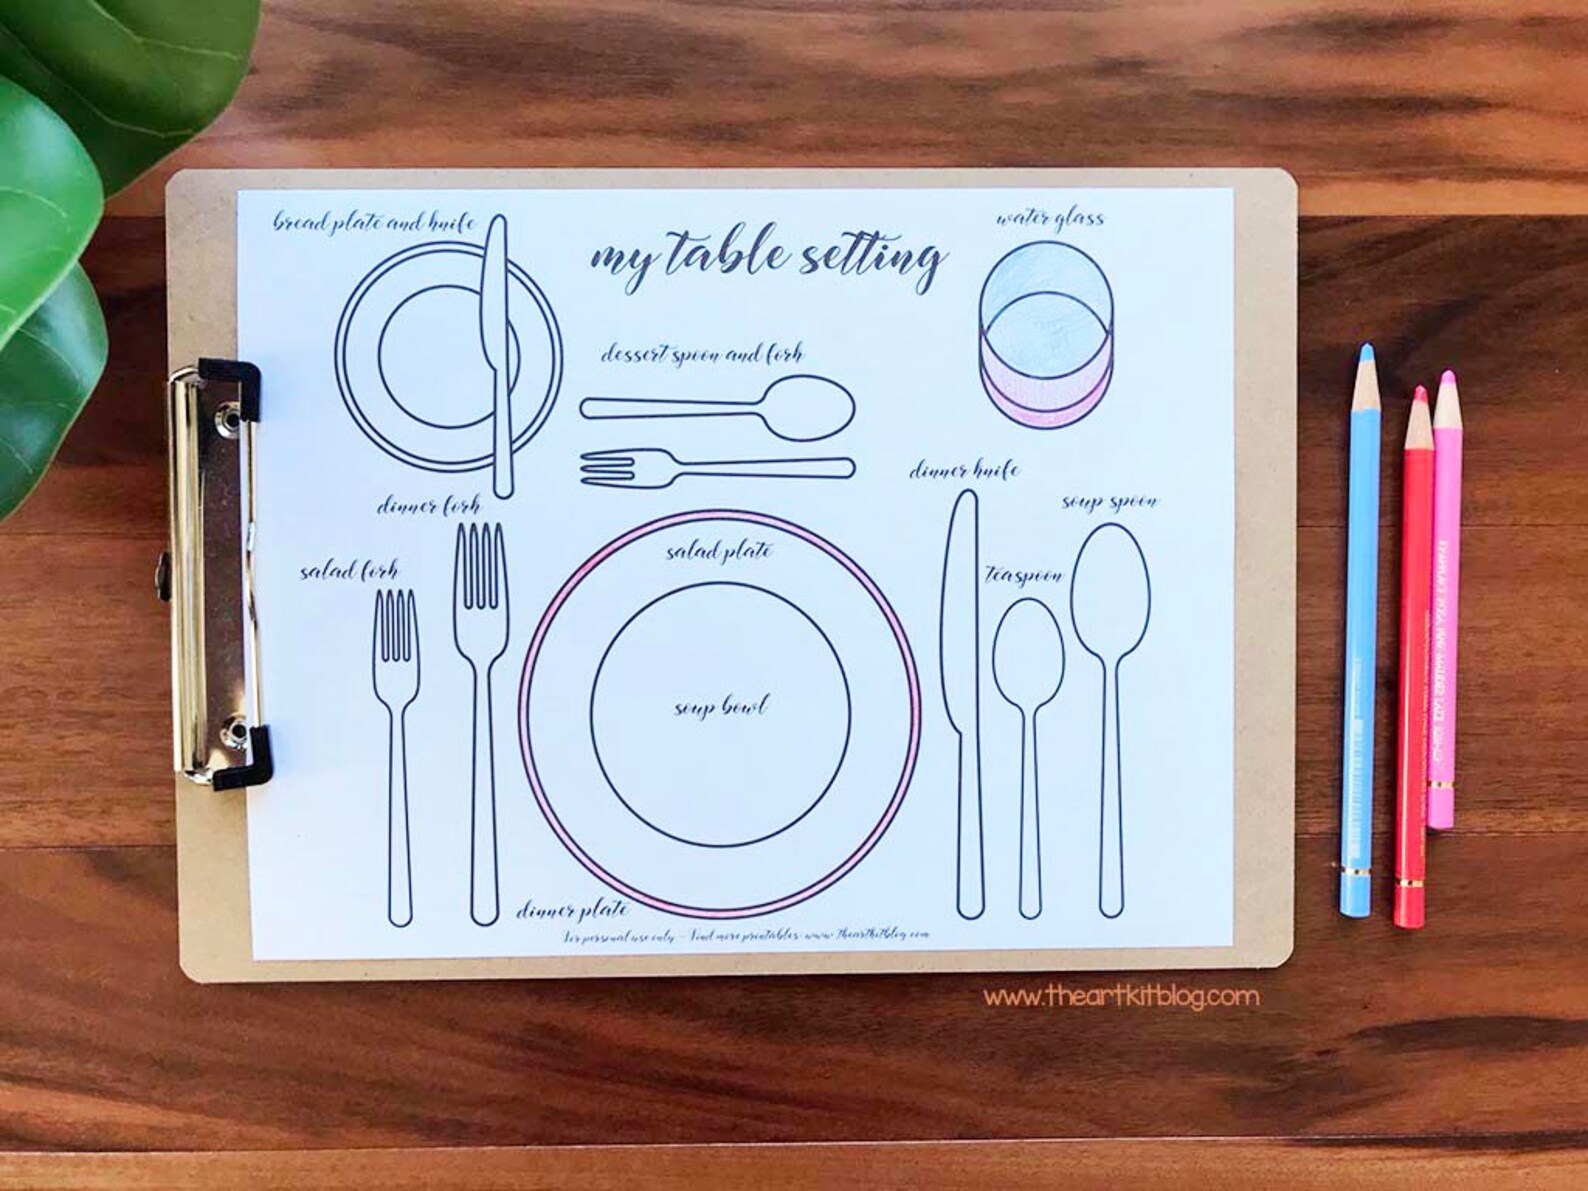 bread plate and knife
my table setting
water glass
dessert spoon and fork
dinner knife
dinner fork
soup spoon
salad plate
salad fork
teaspoon
soup bowl
dinner plate
For personal use only - Find more printables: www.theartkitblog.com
www.theartkitblog.com